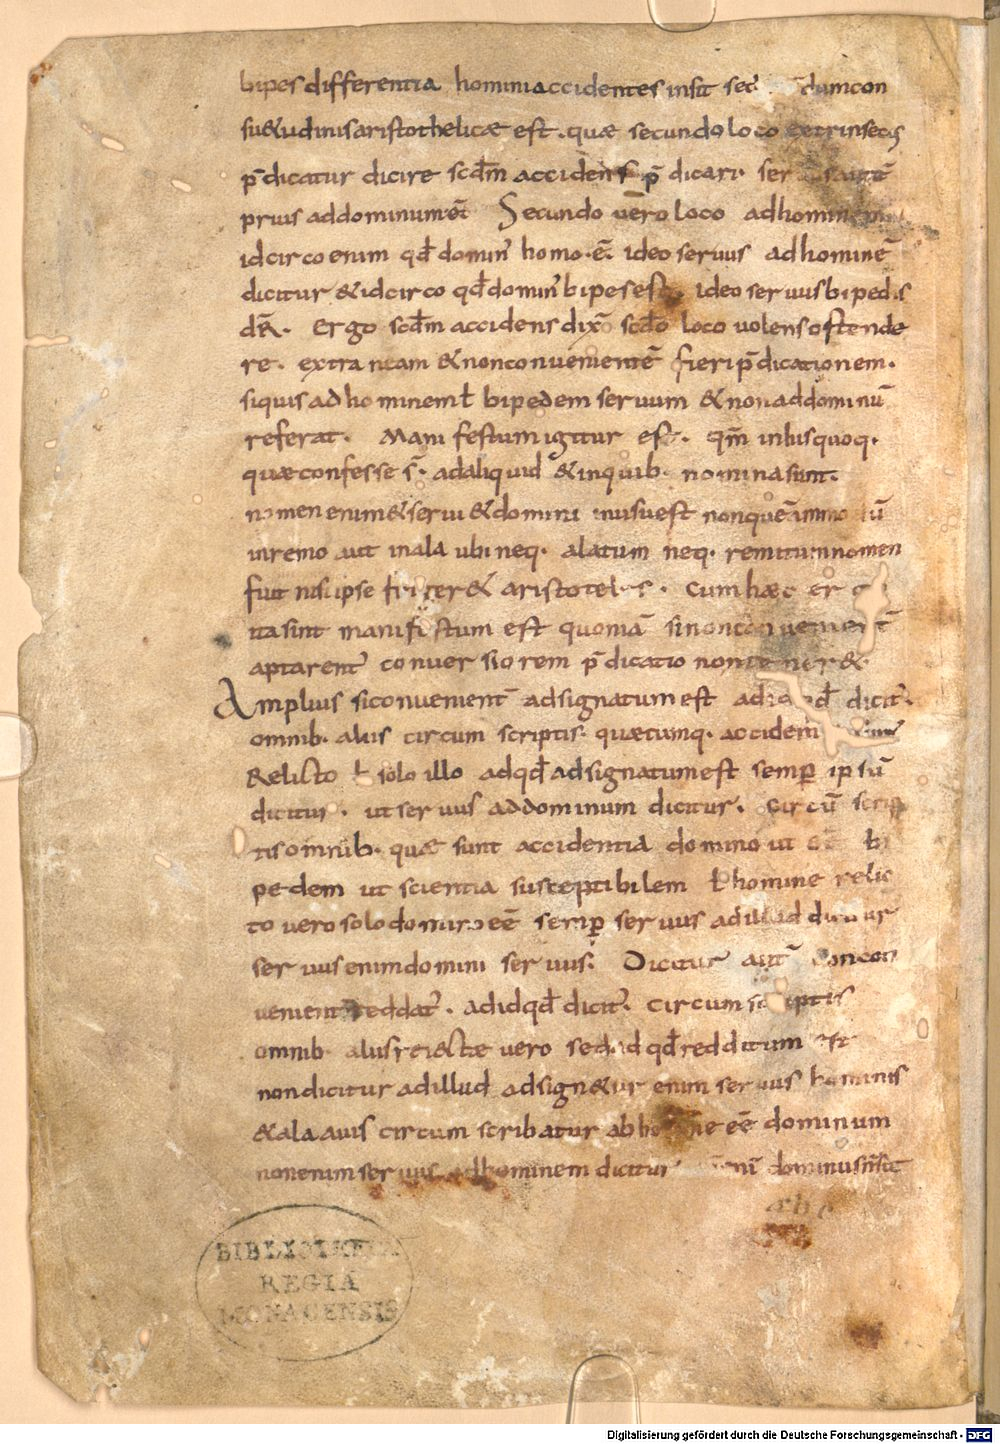 bipes differentia homini accidentes insit sec dum con
su&udinis aristothelicæ est. quæ secundo loco extrinsecus
p̄dicatur dicire scd̄m accidens p̄dicari. ser
prius ad dominum ēt Secundo vero loco ad homin
idcirco enim qđ domin' homo.ē. ideo servus ad hominē
dicitur & idcirco qđ domin' bipes est. ideo servus bipedis
Ergo scd̄m accidens dix scdō loco volens ostende
re. extraneam & non convenientē fieri p̄dicationem.
siquis ad hominem ł bipedem servum & non ad dominū
referat. Manifestum igitur est. qm̄ in his quoq.
quæ confesse s̄. ad aliquid & in quib. nomina sunt.
nomen enim & servi & domini in usu est non quēammodū
in remo aut in ala ubi neq. alatum neq. remitum nomen
fuit nisi ipse fri ger& aristoteles. Cum hæc er
ita sint manifestum est quoniā si non convenient̄
aptarent' conversiorem p̄dicatio non te ner&.
Amplius si convenient̄ adsignatum est ad qđ dicit'.
omnib. aliis circumscriptis. quæcumq. accident
Relicto ł solo illo ad qđ adsignatum est semp̄ ipsū
dicitur. ut servus ad dominum dicitur. Circū scrip
tis omnib. quæ sunt accidentia domino ut bi
pedem ut scientia susceptibilem ł homine relic
to vero solo domino eē semp̄ servus ad illud dicitur
servus enim domini servus. Dicitur aut̄ non con
venient reddat'. ad id qđ dicit'. circumscriptis
omnib. aliis relictæ vero sed ad qđ redditum est
non dicitur ad illud adsign&ur enim servus hominis
& ala avis circumscribatur ab homine eē dominum
non enim servus ad hominem dicitur dominus n̄ sit
BIBLIOTHECA
REGIA
MONACENSIS
Digitalisierung gefördert durch die Deutsche Forschungsgemeinschaft - DFG